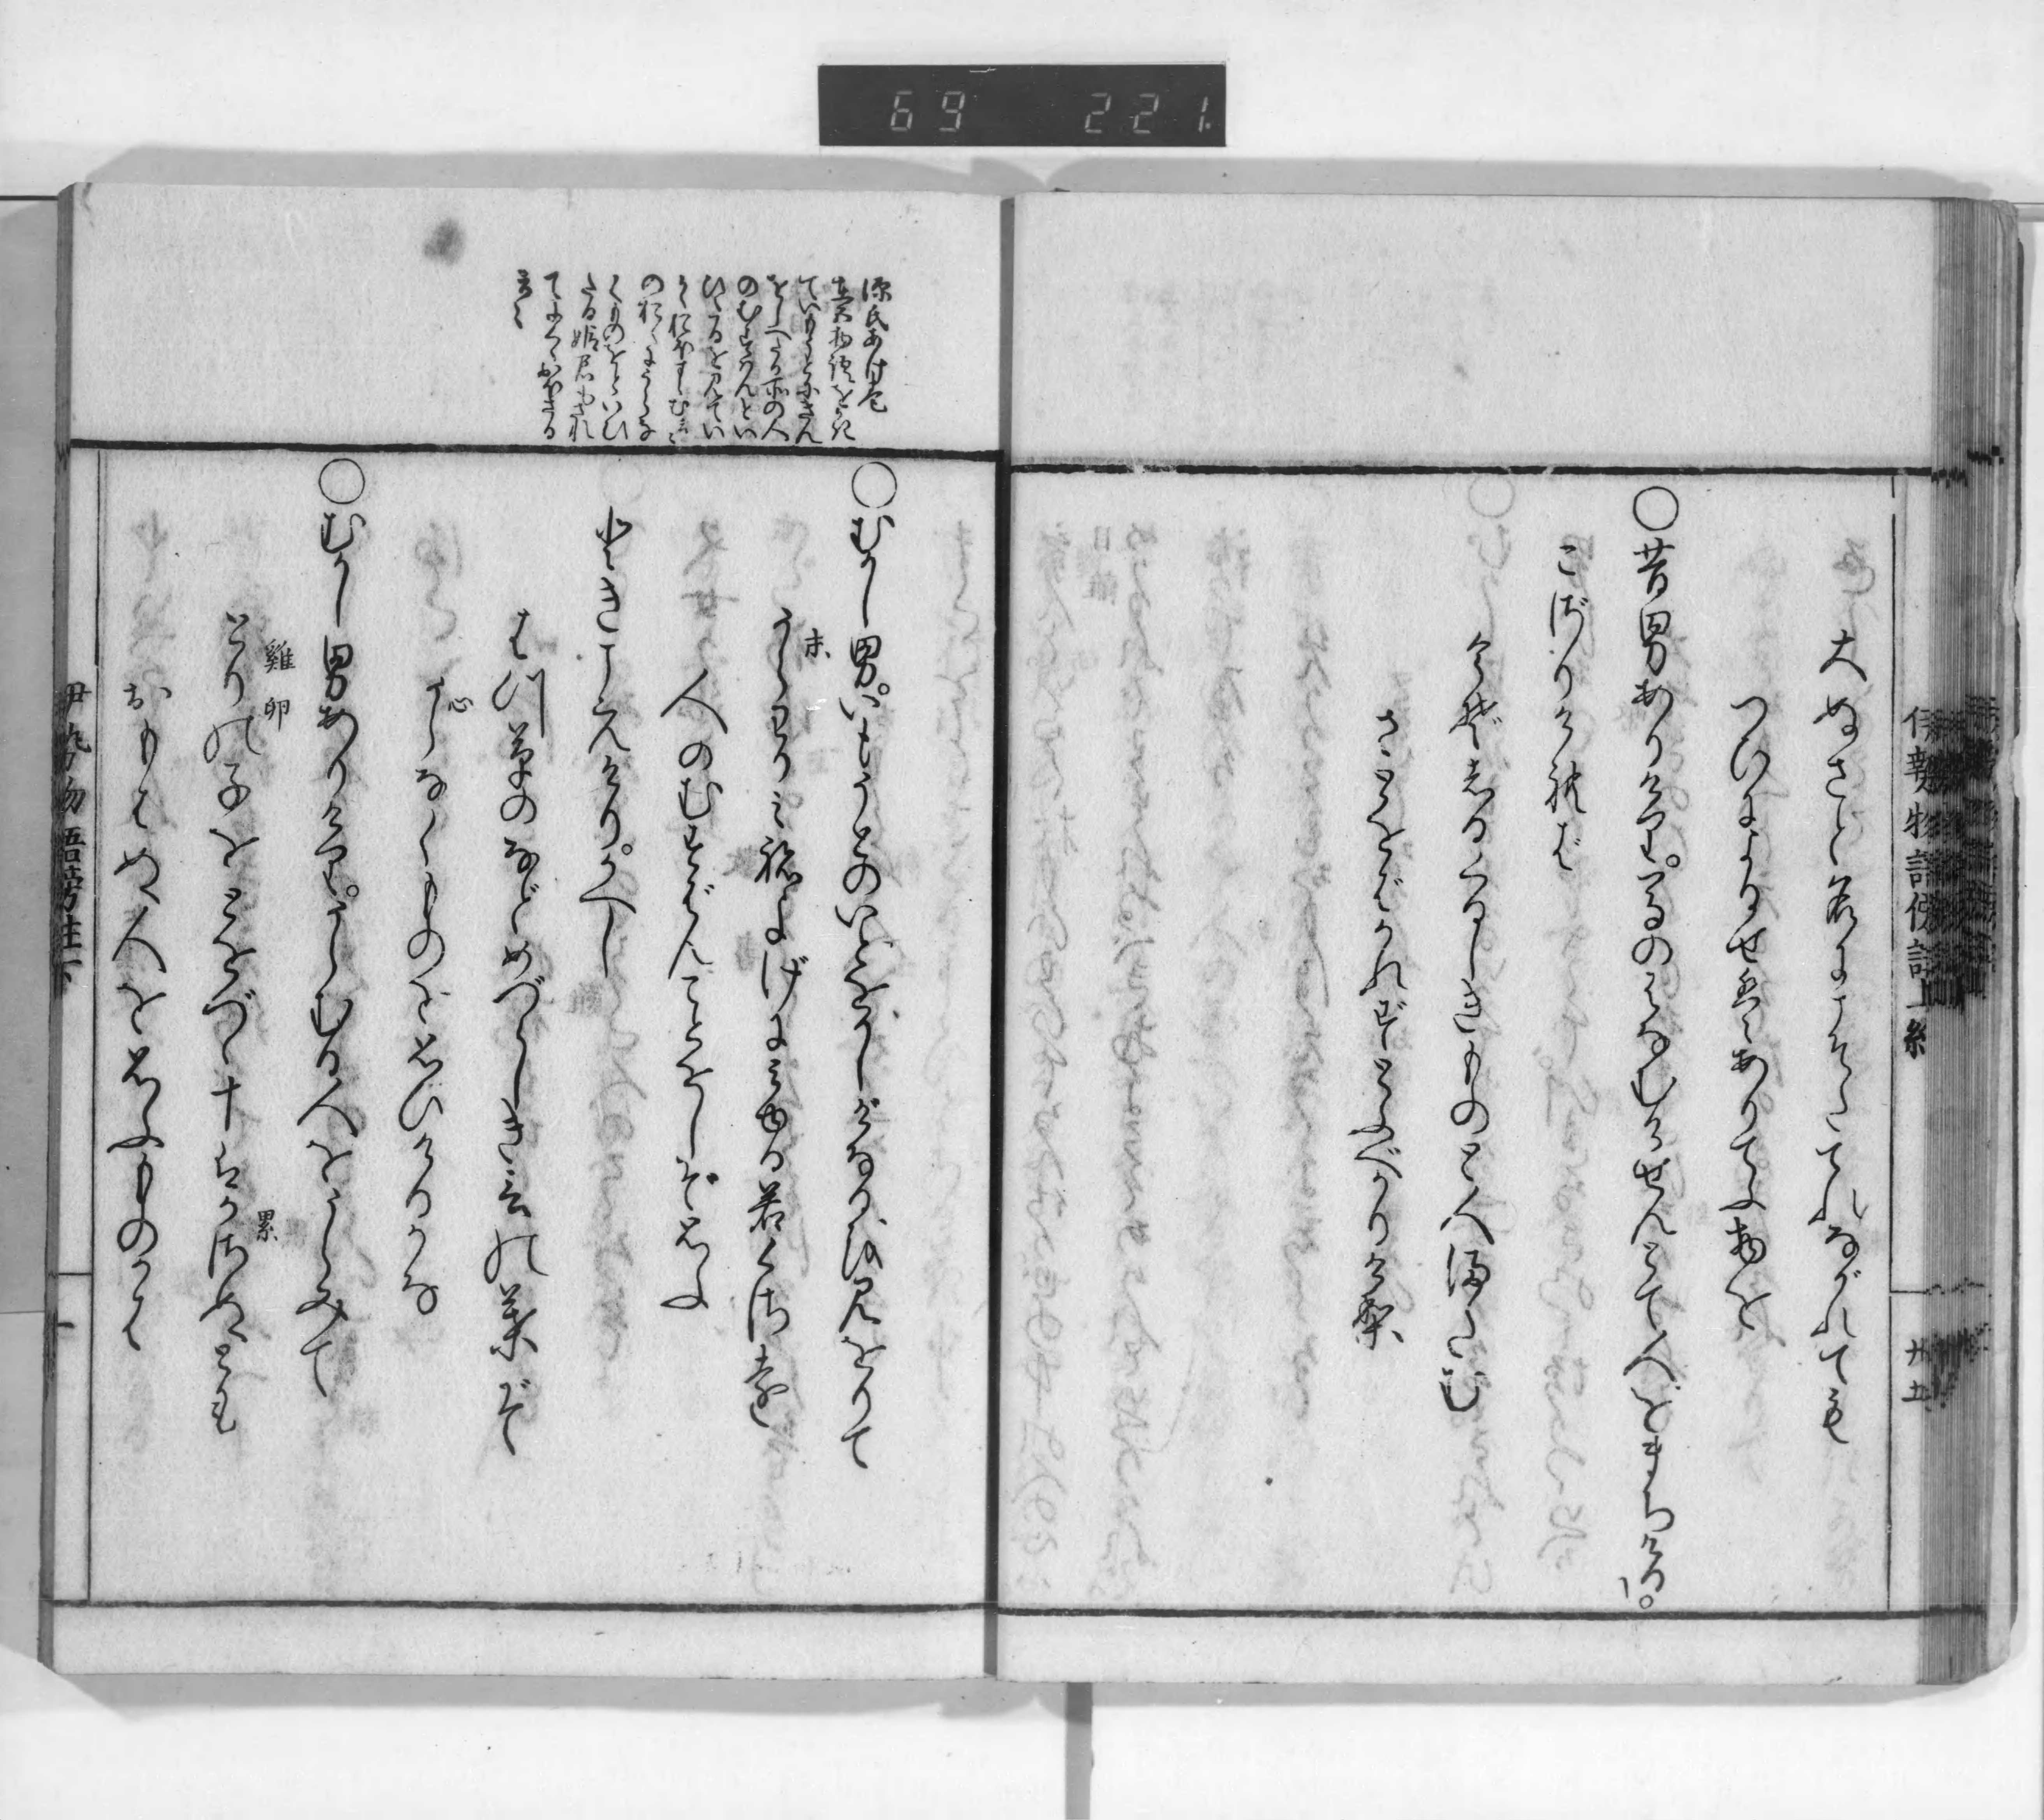 69 221
伊勢物語傍註上終
廿五
大ぬさと名にこそたてれながれても
つひによるせはありてふ物を
〇昔男ありけり。馬のはなむけせんとて人をまちけるに。
こざりければ
今ぞしるくるしきものと人またむ
さとをばかれずとふべかりけり
〇むかし男。いもうとのいとをかしげなるを見をりて
うらわかみねよげにみゆる若くさを
末
人のむすばんことをしぞ思ふ
ときこえけり。かへし
はつ草のなどめづらしき言の葉ぞ
うらなくものを思ひけるかな
心
〇むかし男ありけり。うらむる人をうらみて
とりの子をとをづゝ十はかさぬとも
雞卵
累
おもはぬ人を思ふものかは
伊勢物語傍註下
源氏あげ巻
在五が物語をかき
ていもうとにきん
をしへたる所の人
のむすばんとい
ひたるを見てい